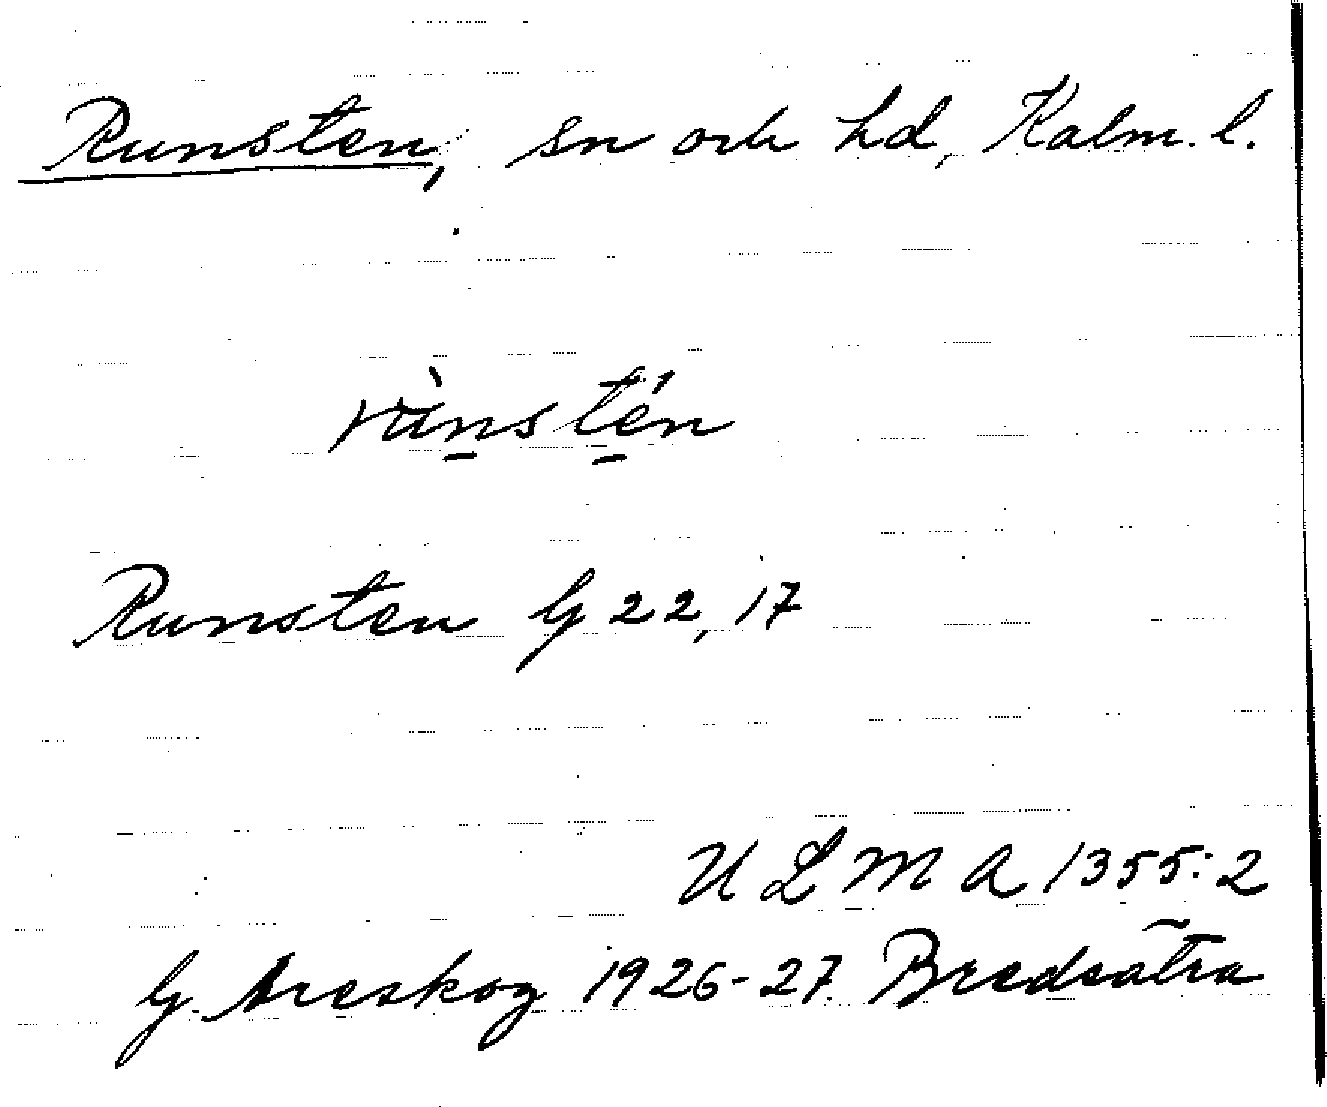 Runsten, sn och hd, Kalm. l.
rùnstén
Runsten G 22, 17
U L M A 1355:2
G. Areskog 1926-27. Bredsätra